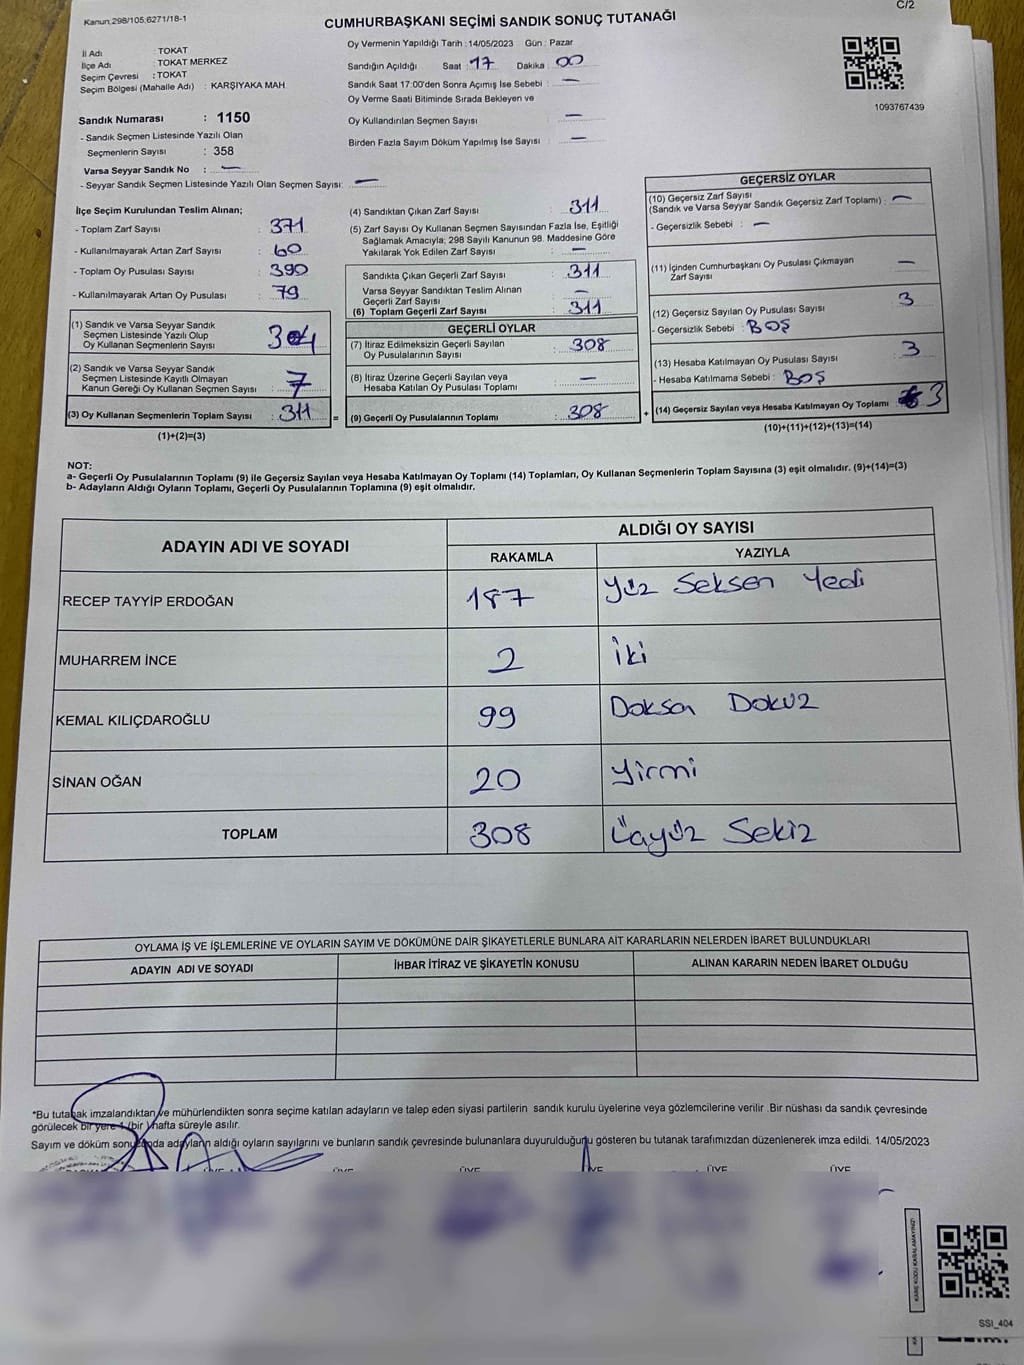 Kanun.298/105,6271/18-1
C/2
CUMHURBAŞKANI SEÇİMİ SANDIK SONUÇ TUTANAĞI
İl Adı : TOKAT
İlçe Adı : TOKAT MERKEZ
Seçim Çevresi : TOKAT
Seçim Bölgesi (Mahalle Adı) : KARŞIYAKA MAH
Sandık Numarası : 1150
- Sandık Seçmen Listesinde Yazılı Olan
Seçmenlerin Sayısı : 358
Varsa Seyyar Sandık No : —
- Seyyar Sandık Seçmen Listesinde Yazılı Olan Seçmen Sayısı: —
Oy Vermenin Yapıldığı Tarih : 14/05/2023 Gün : Pazar
Sandığın Açıldığı Saat : 17 Dakika : 00
Sandık Saat 17:00'den Sonra Açımış İse Sebebi : —
Oy Verme Saati Bitiminde Sırada Bekleyen ve
Oy Kullandırılan Seçmen Sayısı : —
Birden Fazla Sayım Döküm Yapılmış İse Sayısı : —
1093767439
İlçe Seçim Kurulundan Teslim Alınan;
- Toplam Zarf Sayısı : 371
- Kullanılmayarak Artan Zarf Sayısı : 60
- Toplam Oy Pusulası Sayısı : 390
- Kullanılmayarak Artan Oy Pusulası : 79
(1) Sandık ve Varsa Seyyar Sandık
Seçmen Listesinde Yazılı Olup
Oy Kullanan Seçmenlerin Sayısı : 304
(2) Sandık ve Varsa Seyyar Sandık
Seçmen Listesinde Kayıtlı Olmayan
Kanun Gereği Oy Kullanan Seçmen Sayısı : 7
(3) Oy Kullanan Seçmenlerin Toplam Sayısı : 311 =
(1)+(2)=(3)
(4) Sandıktan Çıkan Zarf Sayısı : 311
(5) Zarf Sayısı Oy Kullanan Seçmen Sayısından Fazla İse, Eşitliği
Sağlamak Amacıyla; 298 Sayılı Kanunun 98. Maddesine Göre
Yakılarak Yok Edilen Zarf Sayısı : —
Sandıkta Çıkan Geçerli Zarf Sayısı : 311
Varsa Seyyar Sandıktan Teslim Alınan
Geçerli Zarf Sayısı : —
(6) Toplam Geçerli Zarf Sayısı : 311
GEÇERLİ OYLAR
(7) İtiraz Edilmeksizin Geçerli Sayılan
Oy Pusulalarının Sayısı : 308
(8) İtiraz Üzerine Geçerli Sayılan veya
Hesaba Katılan Oy Pusulası Toplamı : —
(9) Geçerli Oy Pusulalarının Toplamı : 308 +
GEÇERSİZ OYLAR
(10) Geçersiz Zarf Sayısı
(Sandık ve Varsa Seyyar Sandık Geçersiz Zarf Toplamı) : —
- Geçersizlik Sebebi : —
(11) İçinden Cumhurbaşkanı Oy Pusulası Çıkmayan
Zarf Sayısı : —
(12) Geçersiz Sayılan Oy Pusulası Sayısı : 3
- Geçersizlik Sebebi : BOŞ
(13) Hesaba Katılmayan Oy Pusulası Sayısı : 3
- Hesaba Katılmama Sebebi : BOŞ
(14) Geçersiz Sayılan veya Hesaba Katılmayan Oy Toplamı : 3
(10)+(11)+(12)+(13)=(14)
NOT:
a- Geçerli Oy Pusulalarının Toplamı (9) ile Geçersiz Sayılan veya Hesaba Katılmayan Oy Toplamı (14) Toplamları, Oy Kullanan Seçmenlerin Toplam Sayısına (3) eşit olmalıdır. (9)+(14)=(3)
b- Adayların Aldığı Oyların Toplamı, Geçerli Oy Pusulalarının Toplamına (9) eşit olmalıdır.
ADAYIN ADI VE SOYADI
ALDIĞI OY SAYISI
RAKAMLA YAZIYLA
RECEP TAYYİP ERDOĞAN 187 Yüz Seksen Yedi
MUHARREM İNCE 2 İki
KEMAL KILIÇDAROĞLU 99 Doksan Dokuz
SİNAN OĞAN 20 Yirmi
TOPLAM 308 Üçyüz Sekiz
OYLAMA İŞ VE İŞLEMLERİNE VE OYLARIN SAYIM VE DÖKÜMÜNE DAİR ŞİKAYETLERLE BUNLARA AİT KARARLARIN NELERDEN İBARET BULUNDUKLARI
ADAYIN ADI VE SOYADI İHBAR İTİRAZ VE ŞİKAYETİN KONUSU ALINAN KARARIN NEDEN İBARET OLDUĞU
*Bu tutanak imzalandıktan ve mühürlendikten sonra seçime katılan adayların ve talep eden siyasi partilerin sandık kurulu üyelerine veya gözlemcilerine verilir .Bir nüshası da sandık çevresinde
görülecek bir yere 1 (bir ) hafta süreyle asılır.
Sayım ve döküm sonucunda adayların aldığı oyların sayılarını ve bunların sandık çevresinde bulunanlara duyurulduğunu gösteren bu tutanak tarafımızdan düzenlenerek imza edildi. 14/05/2023
ÜYE ÜYE ÜYE ÜYE ÜYE
KARE KODU KARALAMAYINIZ!
SSI_404